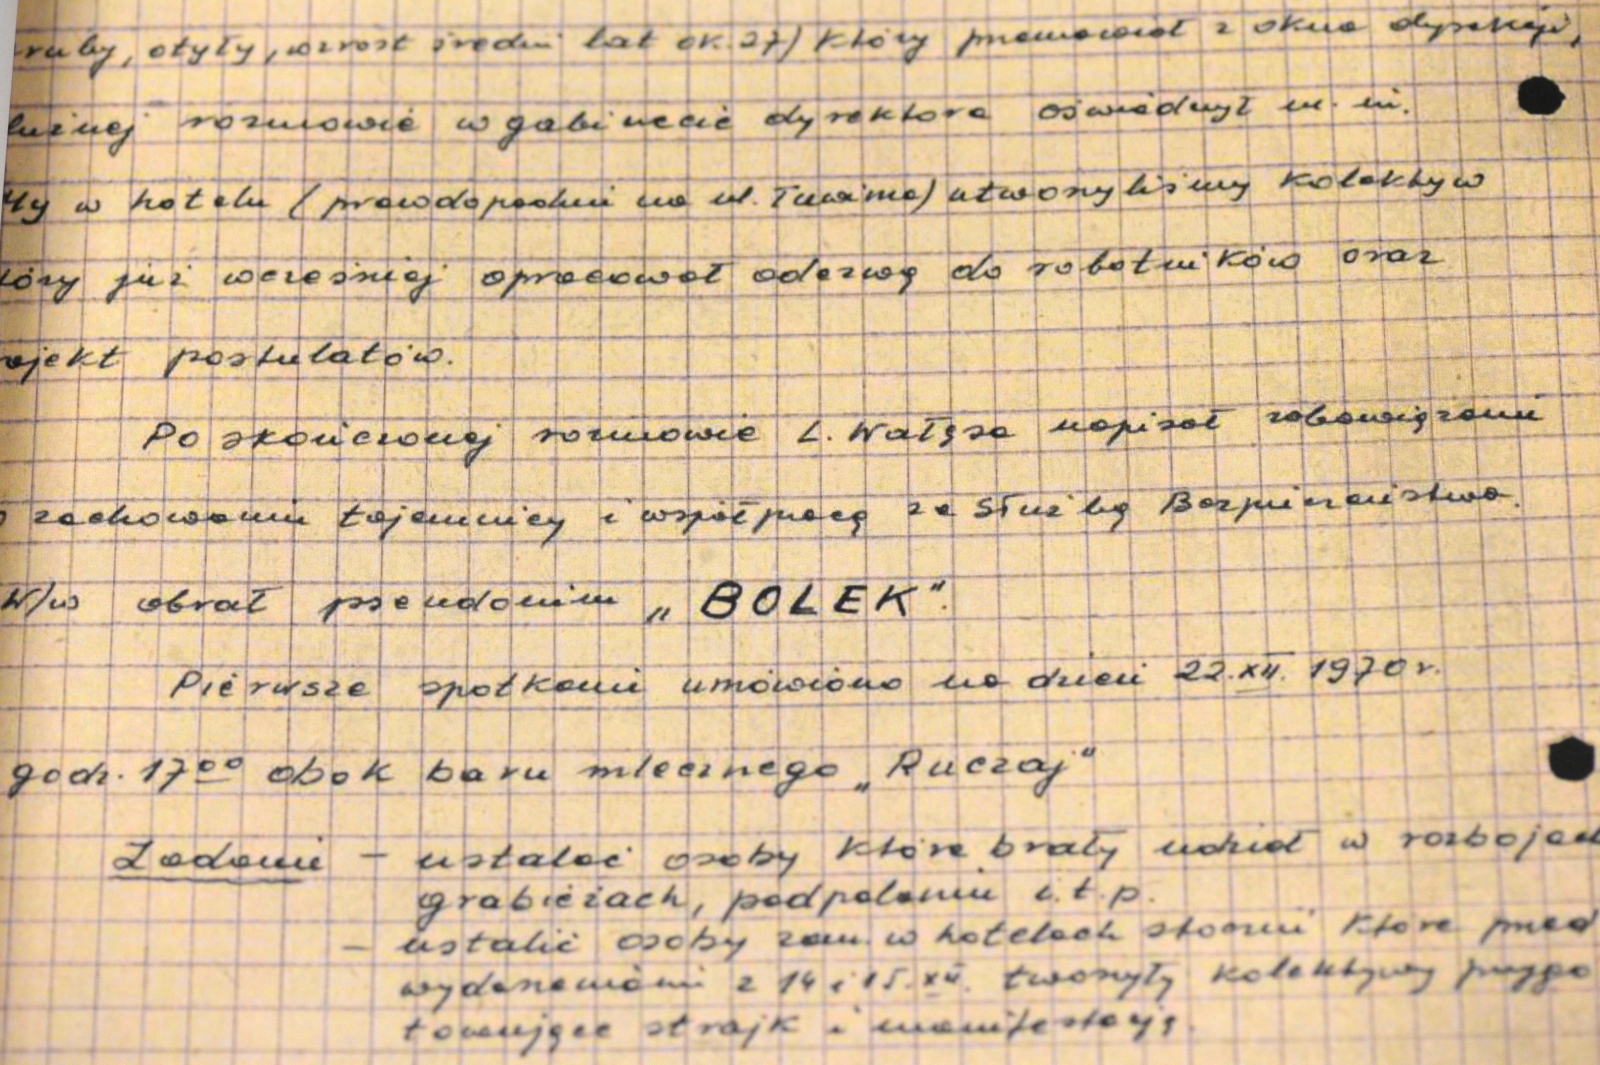 ruby, otyły, wzrost średni lat ok. 27) który przemawiał z okna dyrekcji,
luźnej rozmowie w gabinecie dyrektora oświadczył m. in.
My w hotelu (prawdopodobni na ul. Tuwima) utworzyliśmy kolektyw
tóry już wcześniej opracował odezwę do robotników oraz
ojekt postulatów.
Po skończonej rozmowie L. Wałęsa napisał zobowiązani
o zachowaniu tajemnicy i współpracę ze Służbą Bezpieczeństwa.
W/w obrał pseudonim „BOLEK".
Pierwsze spotkani umówiono na dzień 22.XII. 1970 r.
godz. 17⁰⁰ obok baru mlecznego „Ruczaj"
Zadani – ustalać osoby które brały udział w rozbojach
grabieżach, podpalaniu i.t.p.
– ustalić osoby zam. w hotelach stoczni które przed
wydarzeniami z 14 i 15.XII. tworzyły kolektywy przygo
towujące strajk i manifestację.